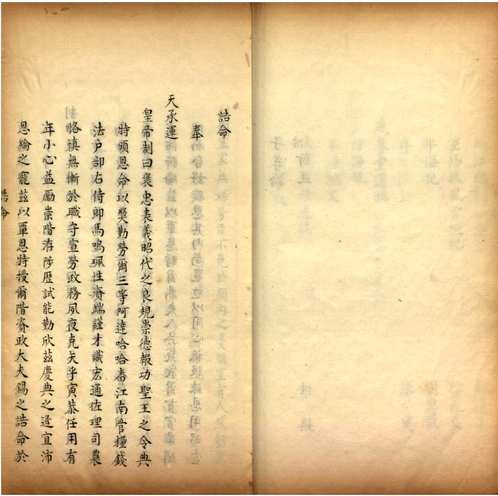 誥命
奉
天承運
皇帝制曰褒忠表義昭代之良規崇德報功聖王之令典
特頒恩命以奬勤勞爾三等阿達哈哈番江南管糧錢
法户部右侍郎馬鳴珮性資端謹才識宏通佐理司農
恪慎無慚於職守宣勞政務夙夜克矢乎寅恭任用有
年小心益勵崇階洊陟歷試能勤欣茲慶典之逢宜沛
恩綸之寵茲以覃恩特授爾階資政大夫錫之誥命於
誥命